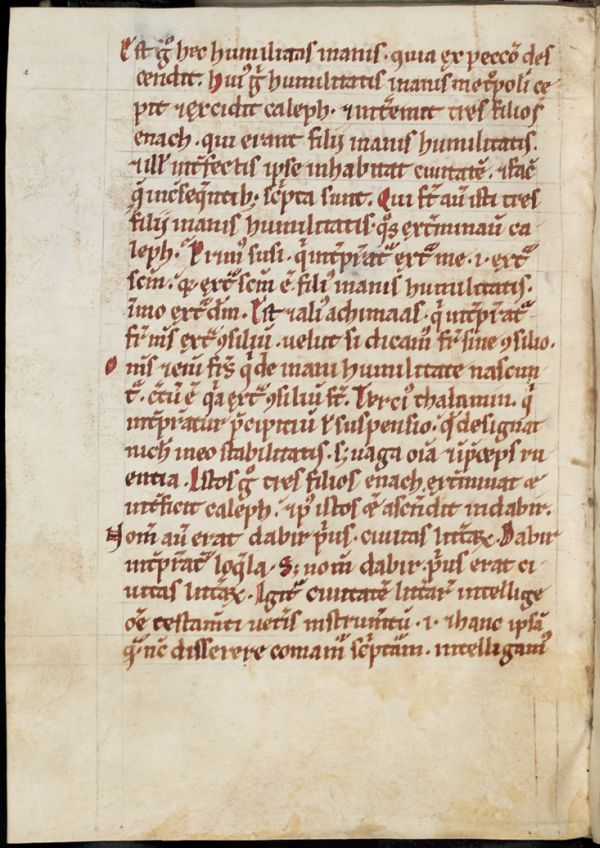 Est g̊ hec humilitas inanis · quia ex peccō des
cendit. Huiꝰ g̊ humilitatis inanis met̾poli ce
pit ⁊ excidit caleph · ⁊ int̾emit tres filios
enach · qui erant filii inanis humilitatis.
⁊ illꝭ int̾fectis ipse inhabitat ciuitatē · ⁊ fac̄
q̄ in c̄seq̄ntib; sc̾pta sunt. Qui s̄t aū isti tres
filii inanis humilitatis · q̊s ext̾minauit ca
leph. Primꝰ susi · q̄ int̾p̾at᷑ ext᷑ me · i · ext᷑
scm̄ · q̾ ext᷑ scm̄ ē filiꝰ inanis humilitatis ·
īmo ext᷑ dm̄. Est ⁊ aliꝰ achimaas · q̄ int̾p̾at᷑
fr̄ mꝰ ext᷑ ꝯsiliū · velut si dicam᷑ fr̄ sine ꝯsilio ·
Om̄s ⁊enī fr̄s q̄ de inani humilitate nascun
t᷑ · c̄tū ē q̄a ext᷑ ꝯsiliū s̄t. Terciꝰ thalamin · q̄
int̾p̾atur p̾cipitiū ł suspensio · q̄ designat
nich̄ in eo stabilitatis · s; uaga om̄ia ⁊ p̾ceps ru
entia. Istos g̊ tres filios enach ext̾minat ⁊
int̾ficit caleph · ⁊ pꝰ istos ꝙ ascendit in dabir.
Nom̄ aū erat dabir p̾us · ciuitas litt̾aꝝ. Dabir
int̾p̾at᷑ loq̄la. S; nom̄ dabir p̾us erat ci
uitas litt̾aꝝ. Igit᷑ ciuitatē litt̾aꝝ intellige
oē testam̄ti uet̾is instrum̄tū · i · ⁊ hanc ipsā
q̄ nc̄ disserere conam᷑ sc̾ptam̄ · intelligamꝰ